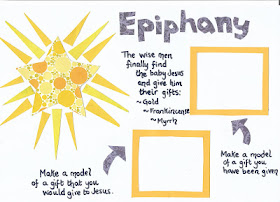 Epiphany
The wise men
finally find
the baby Jesus
and give him
their gifts:
~Gold
~Frankincense
~Myrrh
Make a model
of a gift that you
would give to Jesus.
Make a model
of a gift you
have been given